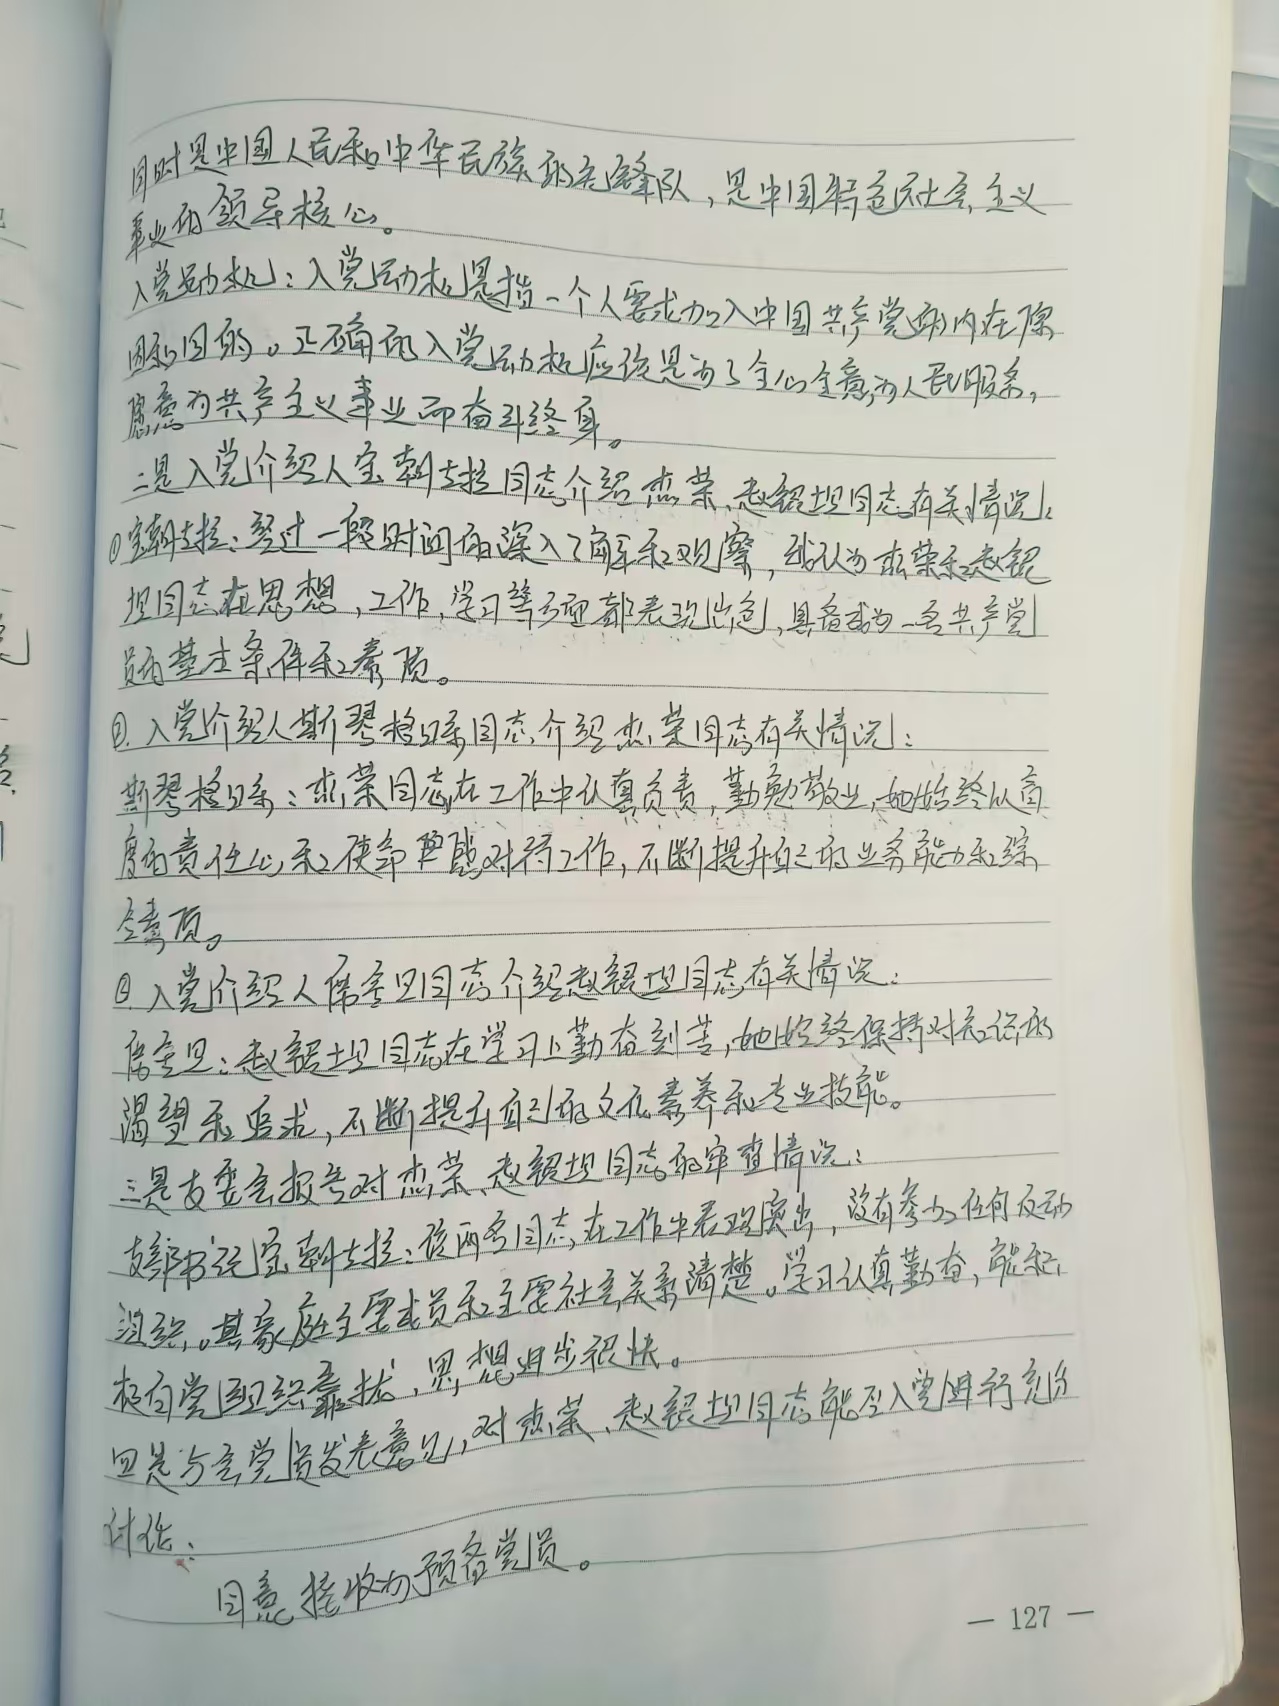 同时是中国人民和中华民族的先锋队，是中国特色社会主义
事业的领导核心。
入党动机：入党动机是指一个人要求加入中国共产党的内在原
因和目的。正确的入党动机应该是为了全心全意为人民服务，
愿意为共产主义事业而奋斗终身。
二是入党介绍人宝朝吉拉同志介绍杰荣、赵银坦同志有关情况：
①宝朝吉拉：经过一段时间的深入了解和观察，我认为杰荣和赵银
坦同志在思想，工作，学习等方面都表现出色，具备成为一名共产党
员的基本条件和素质。
②.入党介绍人斯琴格日乐同志介绍杰荣同志有关情况：
斯琴格日乐：杰荣同志在工作中认真负责，勤勉敬业，她始终以高
度的责任心和使命 对待工作，不断提升自己的业务能力和综
合素质。
入党介绍人 同志介绍赵银坦同志有关情况：
赵银坦同志在学习上勤奋刻苦，她始终保持对知识的
渴望和追求，不断提升自己的文化素养和专业技能。
三是支委会报告对杰荣、赵银坦同志的审查情况：
支部书记宝朝吉拉：该两名同志在工作中表现突出，没有参加任何反动
组织。其家庭主要成员和主要社会关系清楚。学习认真勤奋，能积
极向党组织靠拢，思想进步很快。
四是与会党员发表意见，对杰荣、赵银坦同志能否入党进行充分
讨论：
同意接收为预备党员。
— 127 —